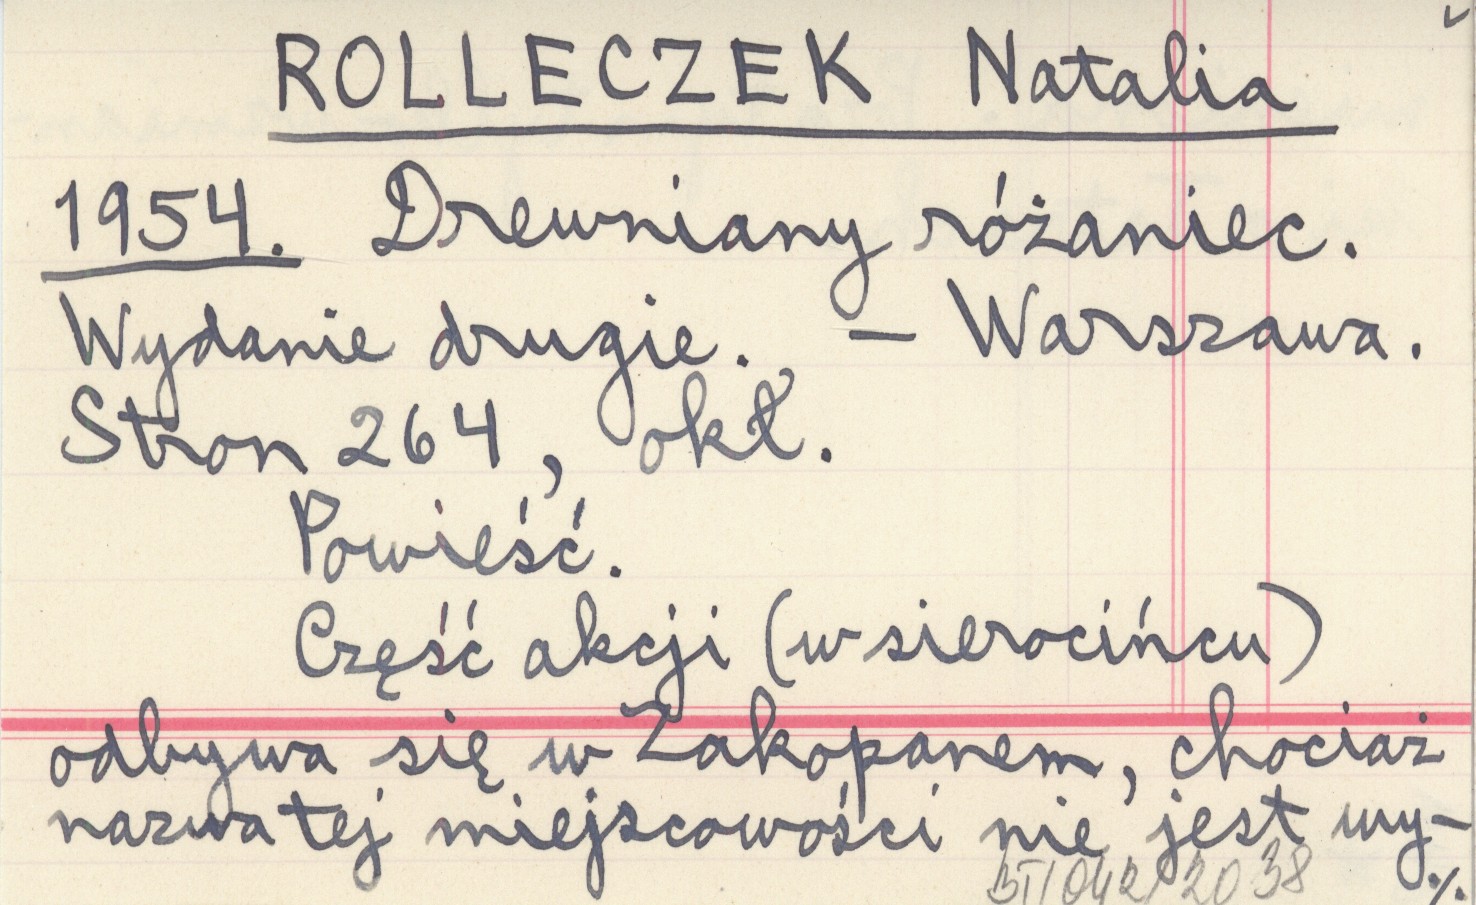 ROLLECZEK Natalia
1954. Drewniany różaniec.
Wydanie drugie. – Warszawa.
Stron 264, okł.
Powieść.
Część akcji (w sierocińcu)
odbywa się w Zakopanem, chociaż
nazwa tej miejscowości nie jest wy-
BT/042/2038
./.